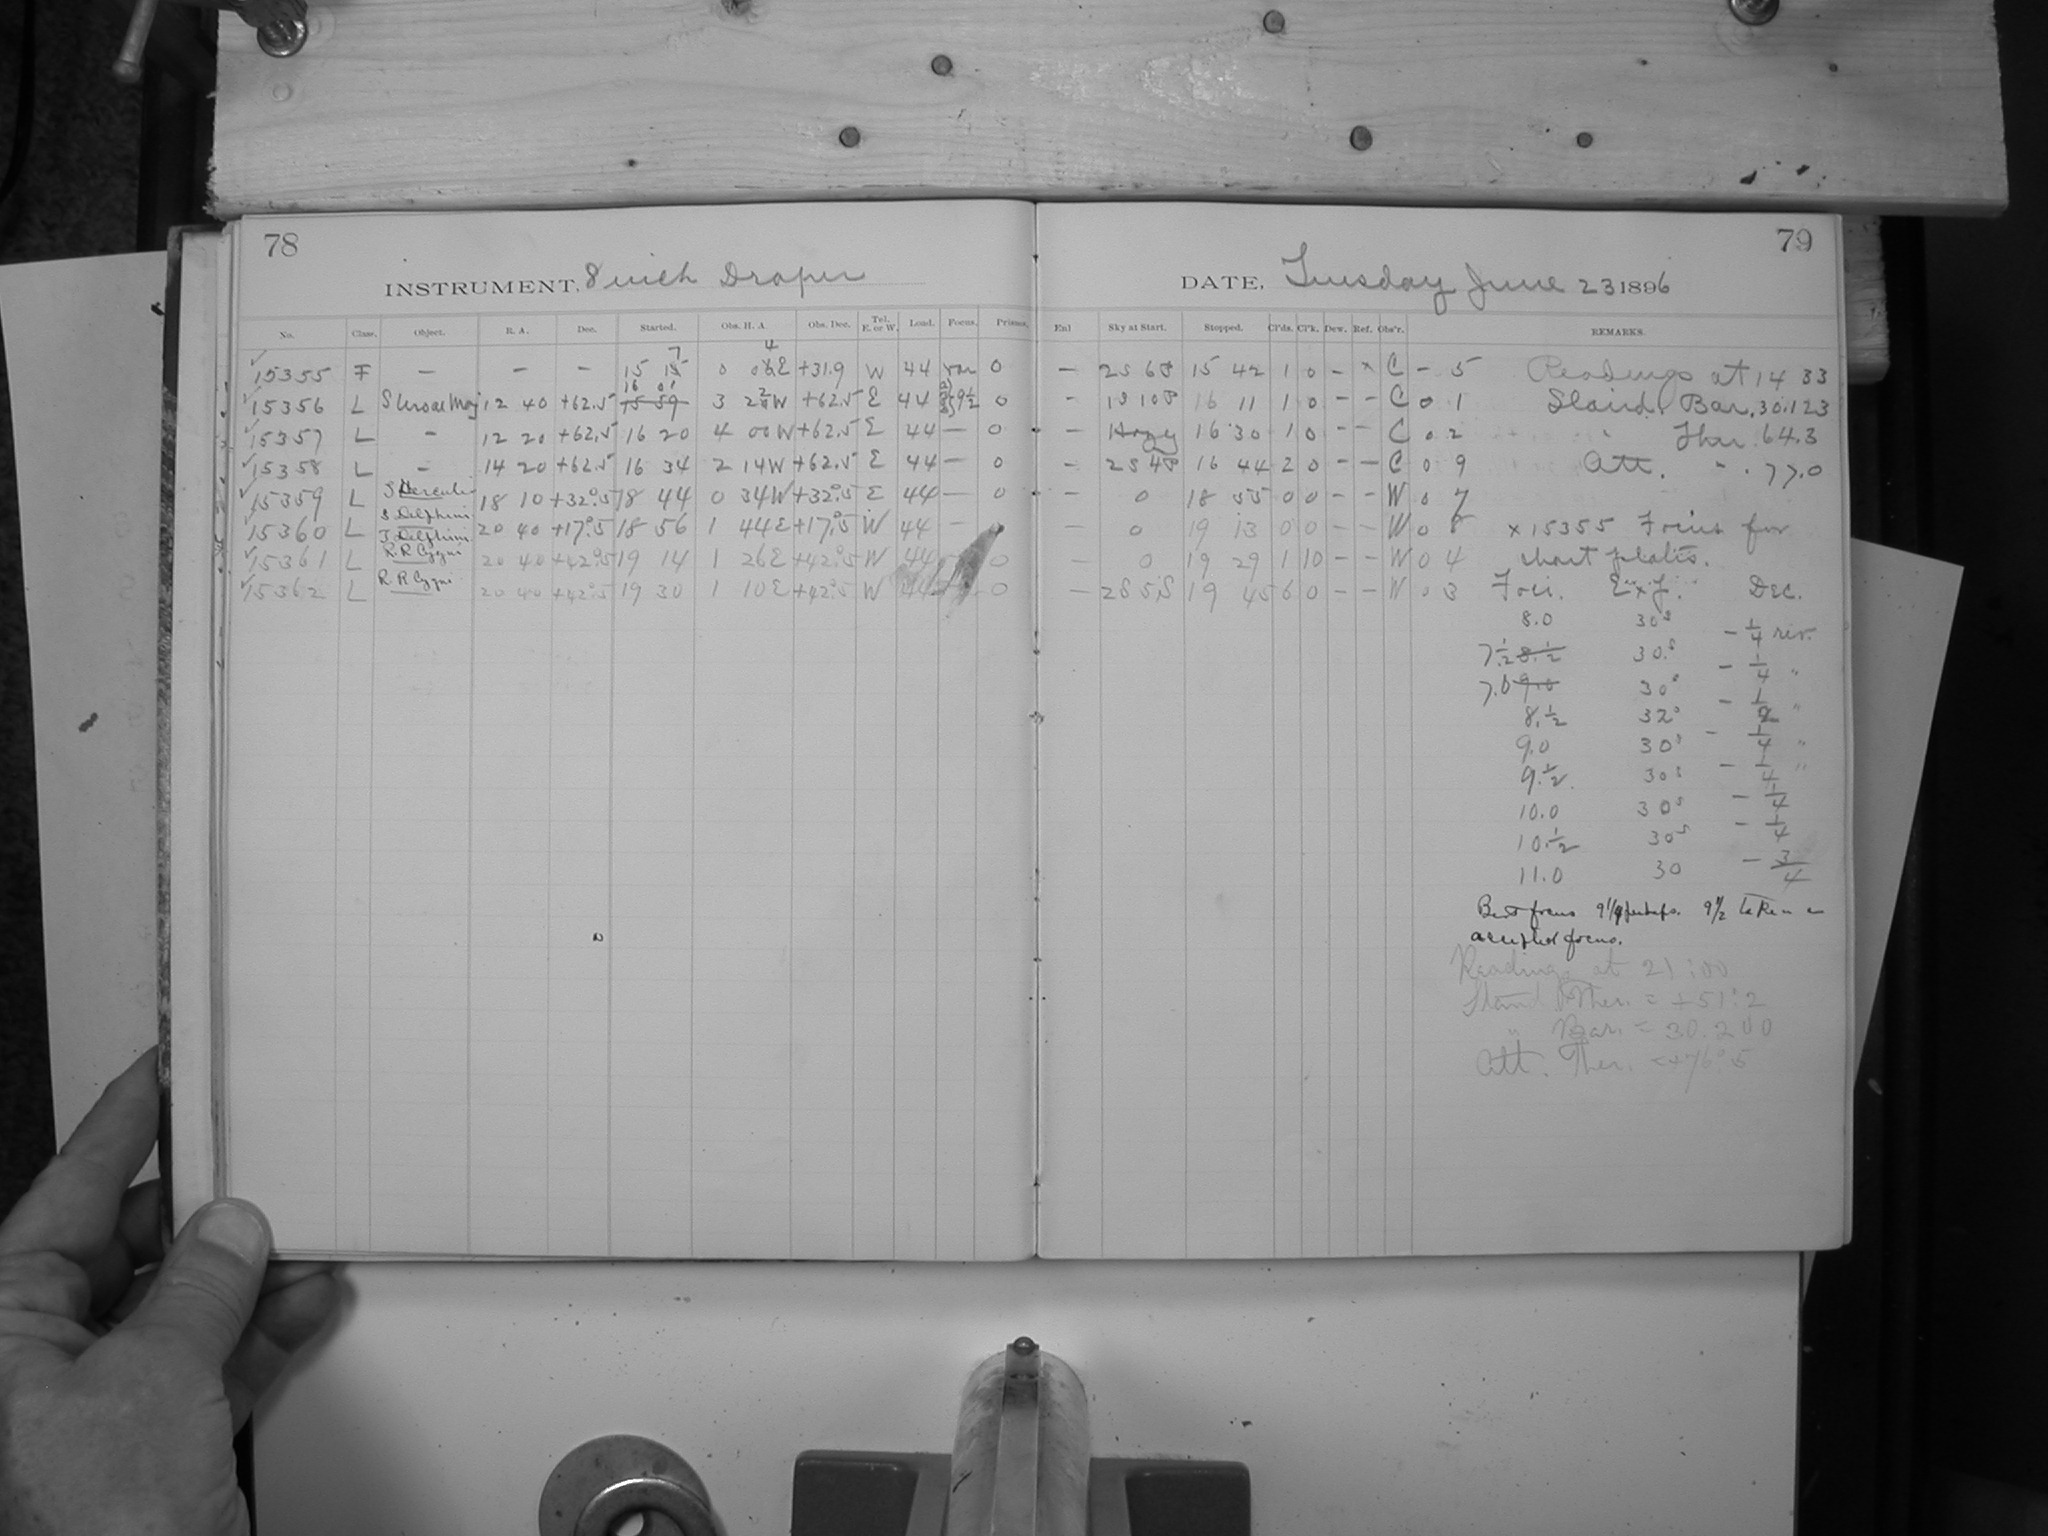 78
79
INSTRUMENT, 8 inch Draper
DATE, Tuesday June 23 1896
No. Class. Object. R. A. Dec. Started. Obs. H. A. Obs. Dec. Tel. E. or W. Load. Focus. Prisms.
Enl Sky at Start. Stopped. Cl'ds. Cl'k. Dew. Ref. Obs'r. REMARKS.
15355 F — — — 15 7 +31.9 W 44 var 0 — 2S 6P 15 42 1 0 – × C – 5 Readings at 14 33
15356 L S Ursae Maj 12 40 +62.5 16 01 15 59 3 W +62.5 E 44 9½ 0 – 1S 10P 16 11 1 0 – – C 0 1 Stand. Bar. 30.123
15357 L – 12 20 +62.5 16 20 4 00W +62.5 E 44 — 0 – Hazy 16 30 1 0 – – C 0 2 " Ther. 64.3
15358 L – 14 20 +62.5 16 34 2 14W +62.5 E 44 — 0 – 2S 4P 16 44 2 0 – – C 0 9 Att. " . 77.0
15359 L S Herculis 18 10 +32°.5 18 44 0 34W +32°.5 E 44 — 0 – 0 18 55 0 0 – – W 0 7
15360 L S Delphini T Delphini 20 40 +17°.5 18 56 1 44E +17°.5 W 44 – – 0 19 13 0 0 – – W 0 8 × 15355 Focus for
15361 L R.R Cygni 20 40 +42°.5 19 14 1 26E +42°.5 W 44 0 – 0 19 29 1 10 – – W 0 4 chart plates.
15362 L R R Cygni 20 40 +42°.5 19 30 1 10E +42°.5 W 44 0 — 2S 5S 19 45 6 0 – – W 0 3 Foci. Exp. Dec.
8.0 30s – ¼ rev.
7½ 8.½ 30.s – ¼ "
7.0 9.0 30s – ½ "
8.½ 30s – ¼ "
9.0 30s – ¼ "
9.½ 30s – ¼
10.0 30s – ¼
10.½ 30s – ¾
11.0 30
Best focus 9¼ perhaps. 9½ taken as
accepted focus.
Readings at 21:00
Stand Ther. = +51°.2
" Bar. = 30.200
Att. Ther. = +76°.5